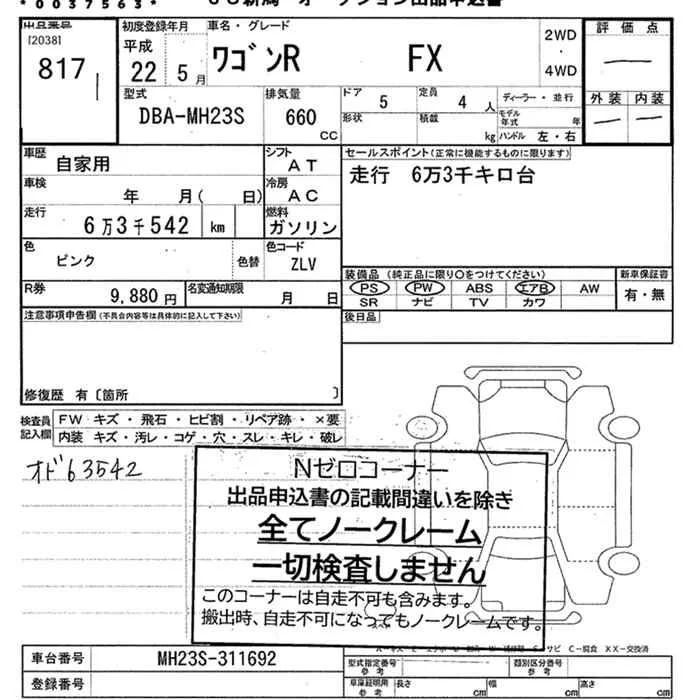 *0037563*
出品番号
[2038]
817
初度登録年月
平成
22 5 月
車名・グレード
ワゴンR FX
2WD
・
4WD
評価点
外装 内装
型式
DBA-MH23S
排気量
660
CC
ドア
5
定員
4 人
形状
積載
kg
ディーラー・並行
モデル年式 年
ハンドル 左・右
車歴
自家用
シフト
AT
車検
年 月( 日)
冷房
AC
走行
6万3千542 km
燃料
ガソリン
色
ピンク
色替
色コード
ZLV
R券
9,880 円
名変通知期限
月 日
セールスポイント(正常に機能するものに限ります)
走行 6万3千キロ台
装備品(純正品に限り○をつけてください)
PS PW ABS エアB AW
SR ナビ TV カワ
新車保証書
有・無
後日品
注意事項申告欄(不具合内容等は具体的に記入して下さい)
修復歴 有〔箇所 〕
検査員
記入欄
FW キズ・飛石・ヒビ割・リペア跡・×要
内装 キズ・汚レ・コゲ・穴・スレ・キレ・破レ
オド63542
Nゼロコーナー
出品申込書の記載間違いを除き
全てノークレーム
一切検査しません
このコーナーは自走不可も含みます。
搬出時、自走不可になってもノークレームです。
サビ C-腐食 XX-交換済
車台番号
MH23S-311692
登録番号
型式指定番号
参考
類別区分番号
参考
車庫証明用
参考
長さ cm
幅 cm
高さ cm